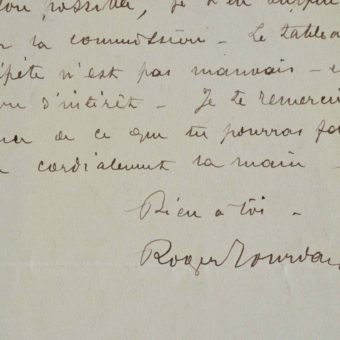 possible, je
la commission - Le tablea
pète n'est pas mauvais - e
d'intérêt - Je te remercie
de ce que tu pourras fa
cordialement la main -
Bien à toi -
Roger Jourda